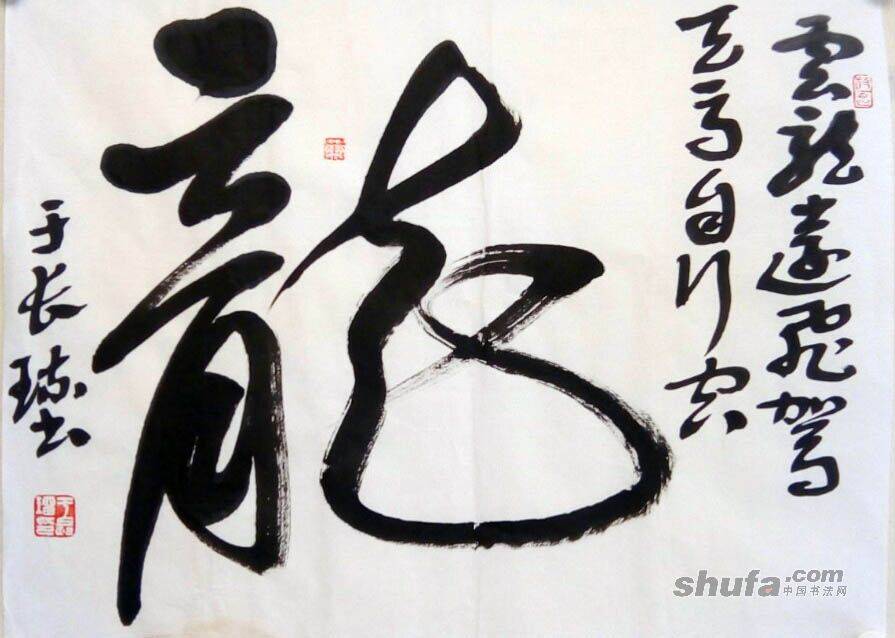 雲龍遠飛駕
天馬自行空
龍
于长 书
shufa.com
中国书法网